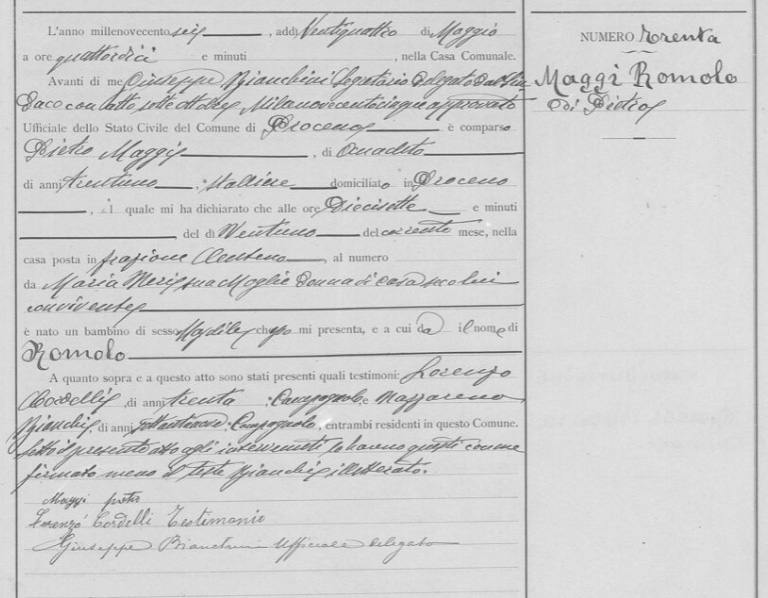 L'anno millenovecento sei, addì Ventiquattro di Maggio
a ore quattordici e minuti , nella Casa Comunale.
Avanti di me Giuseppe Bianchini Segretario Delegato dal Sin
daco con atto sette ottobre Millenovecentocinque approvato
Ufficiale dello Stato Civile del Comune di Proceno è comparso
Pietro Maggi, di Onadito
di anni trentuno, Stalliere domiciliato in Proceno
, il quale mi ha dichiarato che alle ore Diecisette e minuti
del dì Ventuno del corrente mese, nella
casa posta in frazione Centeno, al numero
da Maria Neri sua Moglie Donna di casa seco lui
convivente
è nato un bambino di sesso Maschile che mi presenta, e a cui dà il nome di
Romolo
A quanto sopra e a questo atto sono stati presenti quali testimoni: Lorenzo
Cordelli, di anni trenta, Campagnolo, e Nazzareno
Bianchi, di anni Campagnolo, entrambi residenti in questo Comune.
Letto il presente atto agli intervenuti lo hanno questi con me
firmato meno il teste Bianchi illetterato.
Maggi
Lorenzo Cordelli Testimonio
Giuseppe Bianchini Ufficiale delegato
NUMERO Trenta
Maggi Romolo
di Pietro